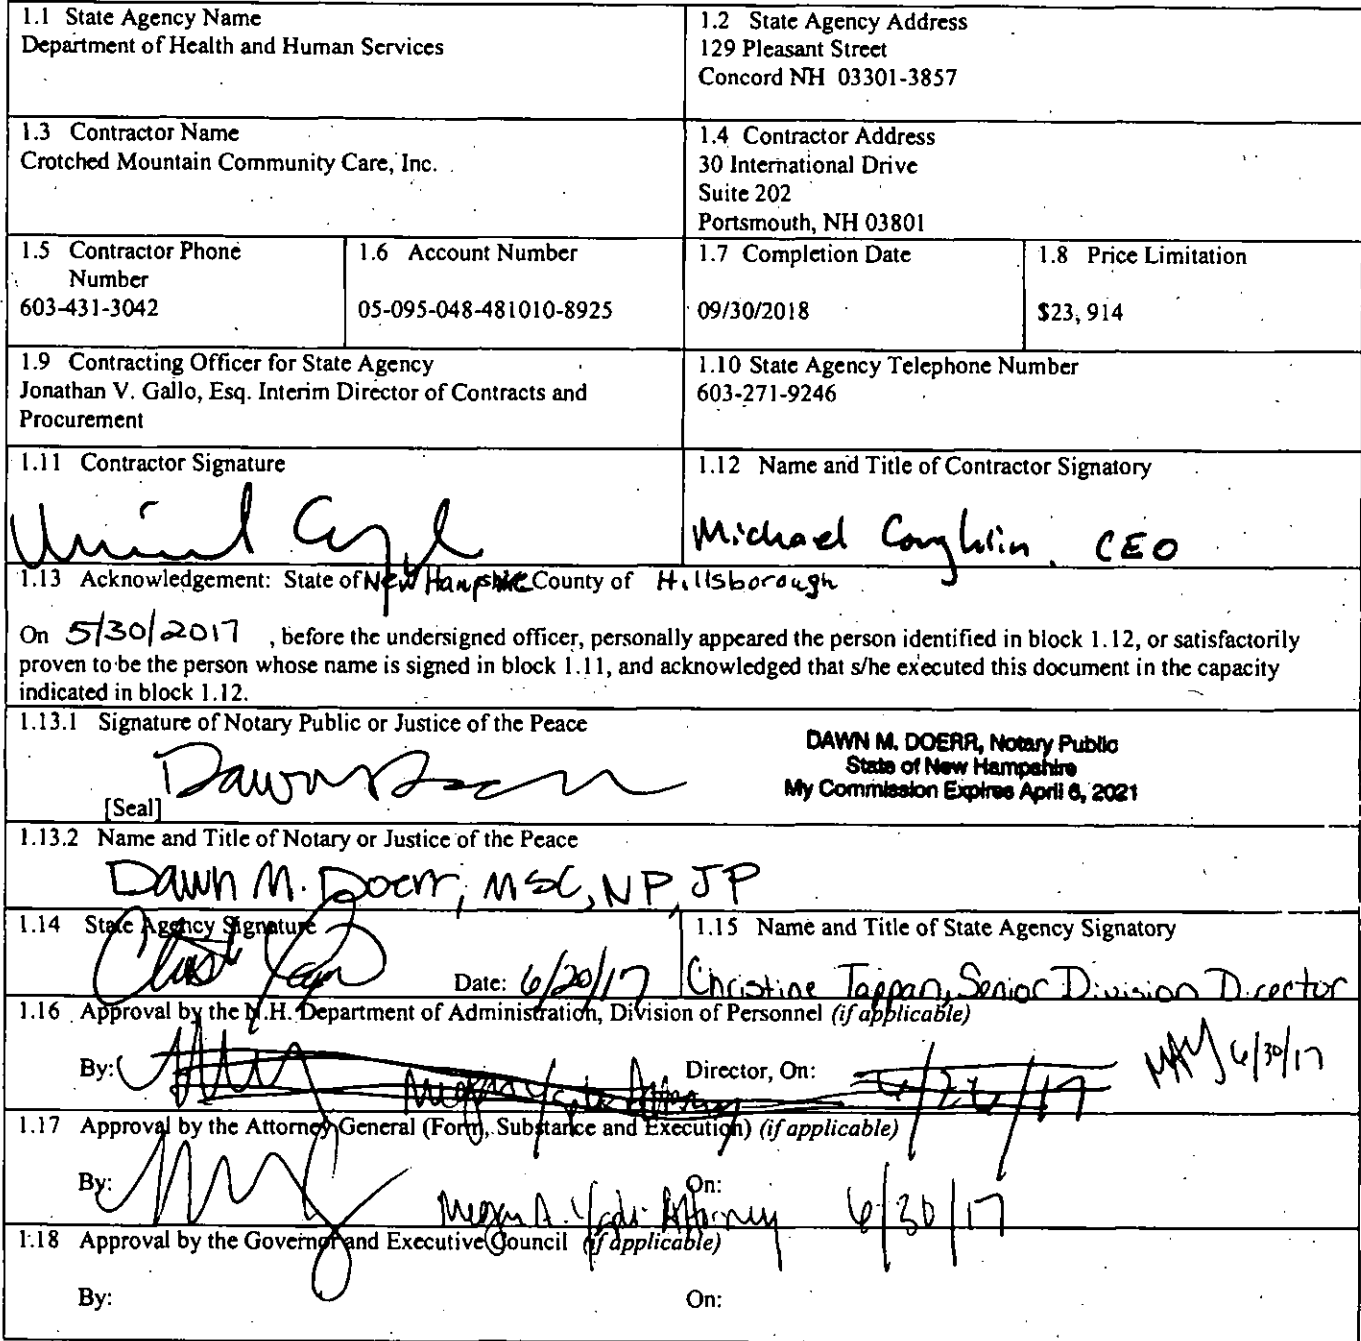 1.1 State Agency Name
Department of Health and Human Services
1.2 State Agency Address
129 Pleasant Street
Concord NH 03301-3857
1.3 Contractor Name
Crotched Mountain Community Care, Inc.
1.4 Contractor Address
30 International Drive
Suite 202
Portsmouth, NH 03801
1.5 Contractor Phone
Number
603-431-3042
1.6 Account Number
05-095-048-481010-8925
1.7 Completion Date
09/30/2018
1.8 Price Limitation
$23, 914
1.9 Contracting Officer for State Agency
Jonathan V. Gallo, Esq. Interim Director of Contracts and
Procurement
1.10 State Agency Telephone Number
603-271-9246
1.11 Contractor Signature
1.12 Name and Title of Contractor Signatory
Michael Coughlin, CEO
1.13 Acknowledgement: State of New Hampshire County of Hillsborough
On 5/30/2017 , before the undersigned officer, personally appeared the person identified in block 1.12, or satisfactorily
proven to be the person whose name is signed in block 1.11, and acknowledged that s/he executed this document in the capacity
indicated in block 1.12.
1.13.1 Signature of Notary Public or Justice of the Peace
DAWN M. DOERR, Notary Public
State of New Hampshire
My Commission Expires April 6, 2021
[Seal]
1.13.2 Name and Title of Notary or Justice of the Peace
Dawn M. Doerr, MSC, NP, JP
1.14 State Agency Signature
Date: 6/20/17
1.15 Name and Title of State Agency Signatory
Christine Tappan, Senior Division Director
1.16 Approval by the N.H. Department of Administration, Division of Personnel (if applicable)
By: Director, On: 6/26/17 MAY 6/30/17
1.17 Approval by the Attorney General (Form, Substance and Execution) (if applicable)
By: Megan A. Attorney On: 6/30/17
1.18 Approval by the Governor and Executive Council (if applicable)
By: On: